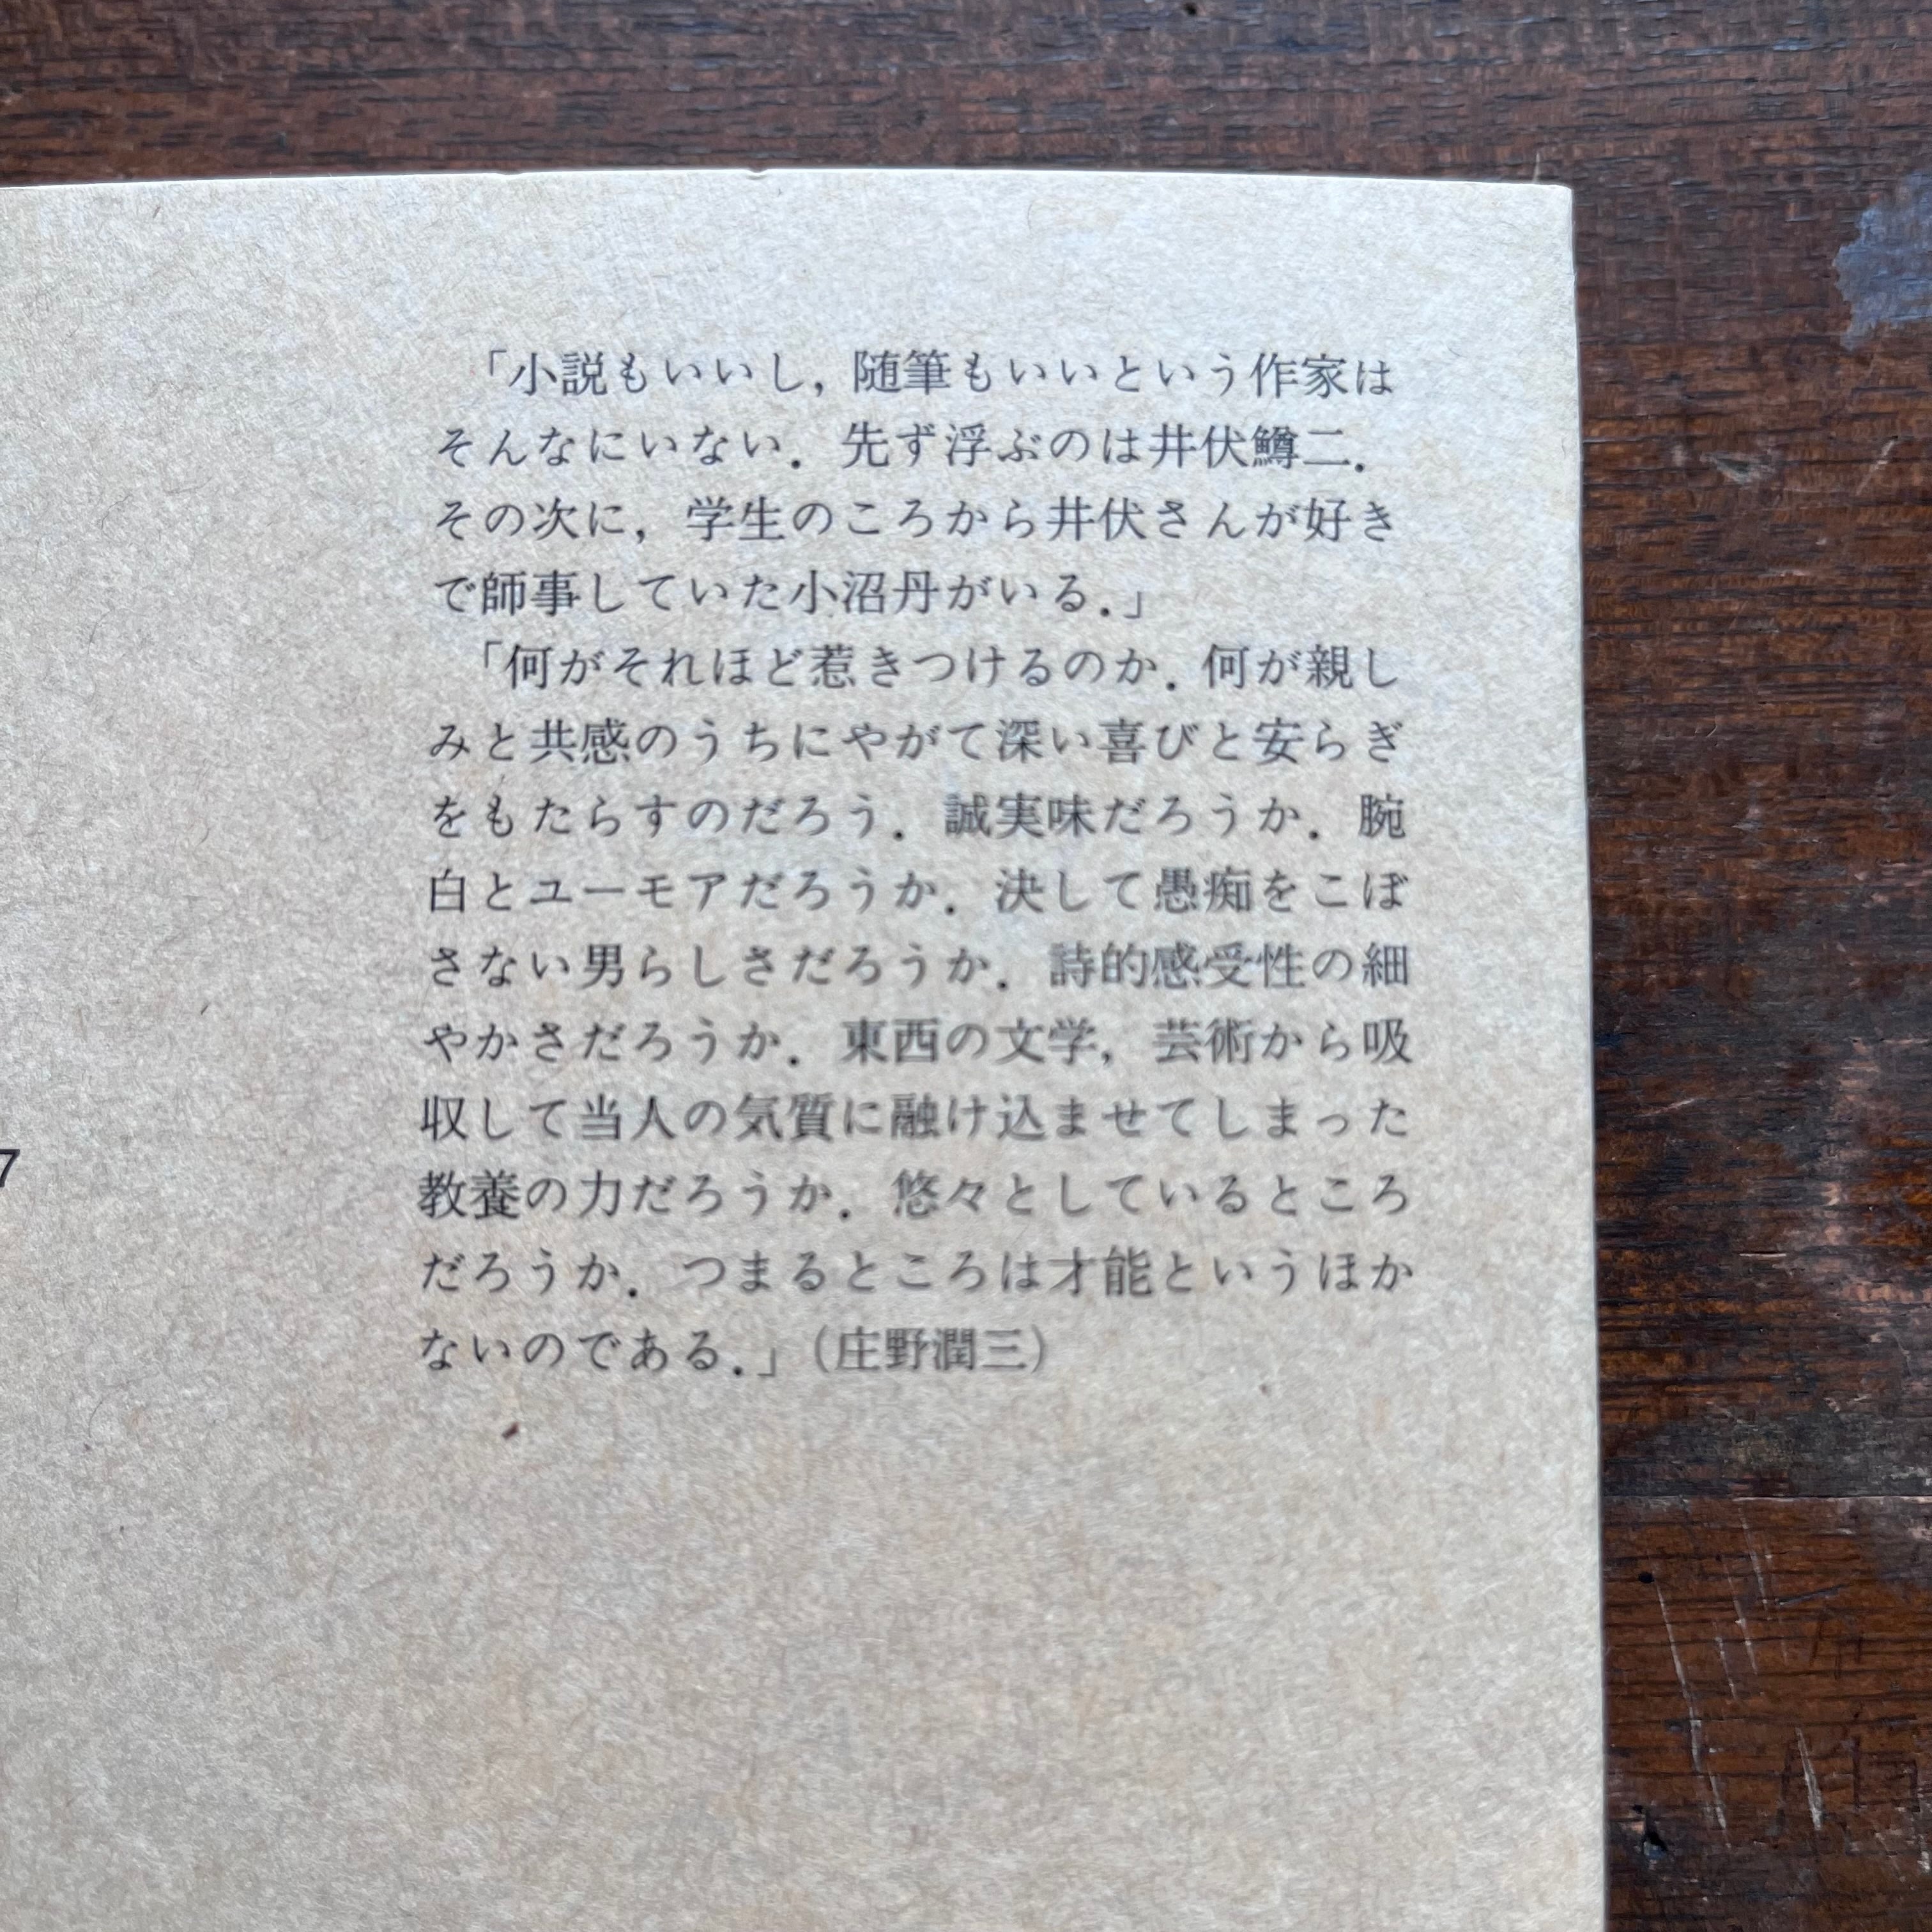 「小説もいいし，随筆もいいという作家は
そんなにいない．先ず浮ぶのは井伏鱒二．
その次に，学生のころから井伏さんが好き
で師事していた小沼丹がいる．」
「何がそれほど惹きつけるのか．何が親し
みと共感のうちにやがて深い喜びと安らぎ
をもたらすのだろう．誠実味だろうか．腕
白とユーモアだろうか．決して愚痴をこぼ
さない男らしさだろうか．詩的感受性の細
やかさだろうか．東西の文学，芸術から吸
収して当人の気質に融け込ませてしまった
教養の力だろうか．悠々としているところ
だろうか．つまるところは才能というほか
ないのである．」（庄野潤三）
7